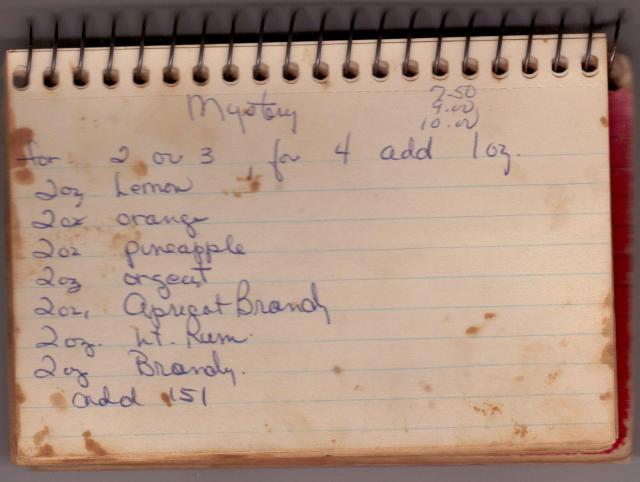 Mystery
7.50
9.00
10.00
for 2 or 3, for 4 add 1oz.
2oz Lemon
2oz orange
2oz pineapple
2oz orgeat
2oz. Apricot Brandy
2oz. Lt. Rum
2oz Brandy.
add 151